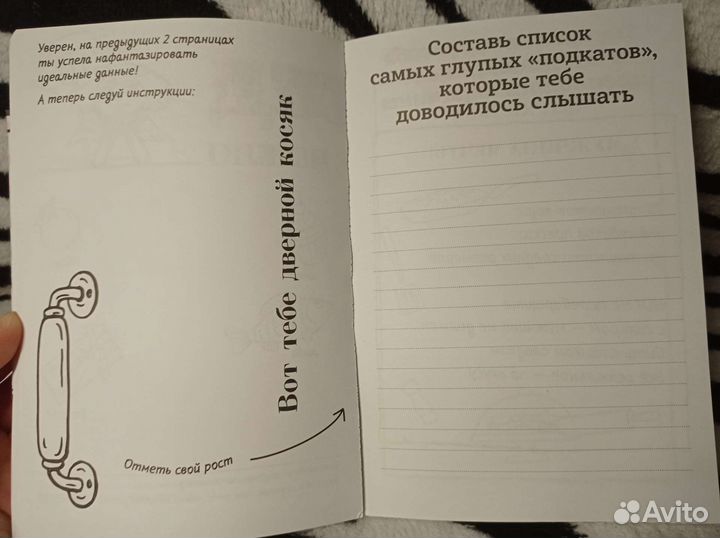 Уверен, на предыдущих 2 страницах
ты успела нафантазировать
идеальные данные!
А теперь следуй инструкции:
Вот тебе дверной косяк
Отметь свой рост
Составь список
самых глупых «подкатов»,
которые тебе
доводилось слышать
Avito